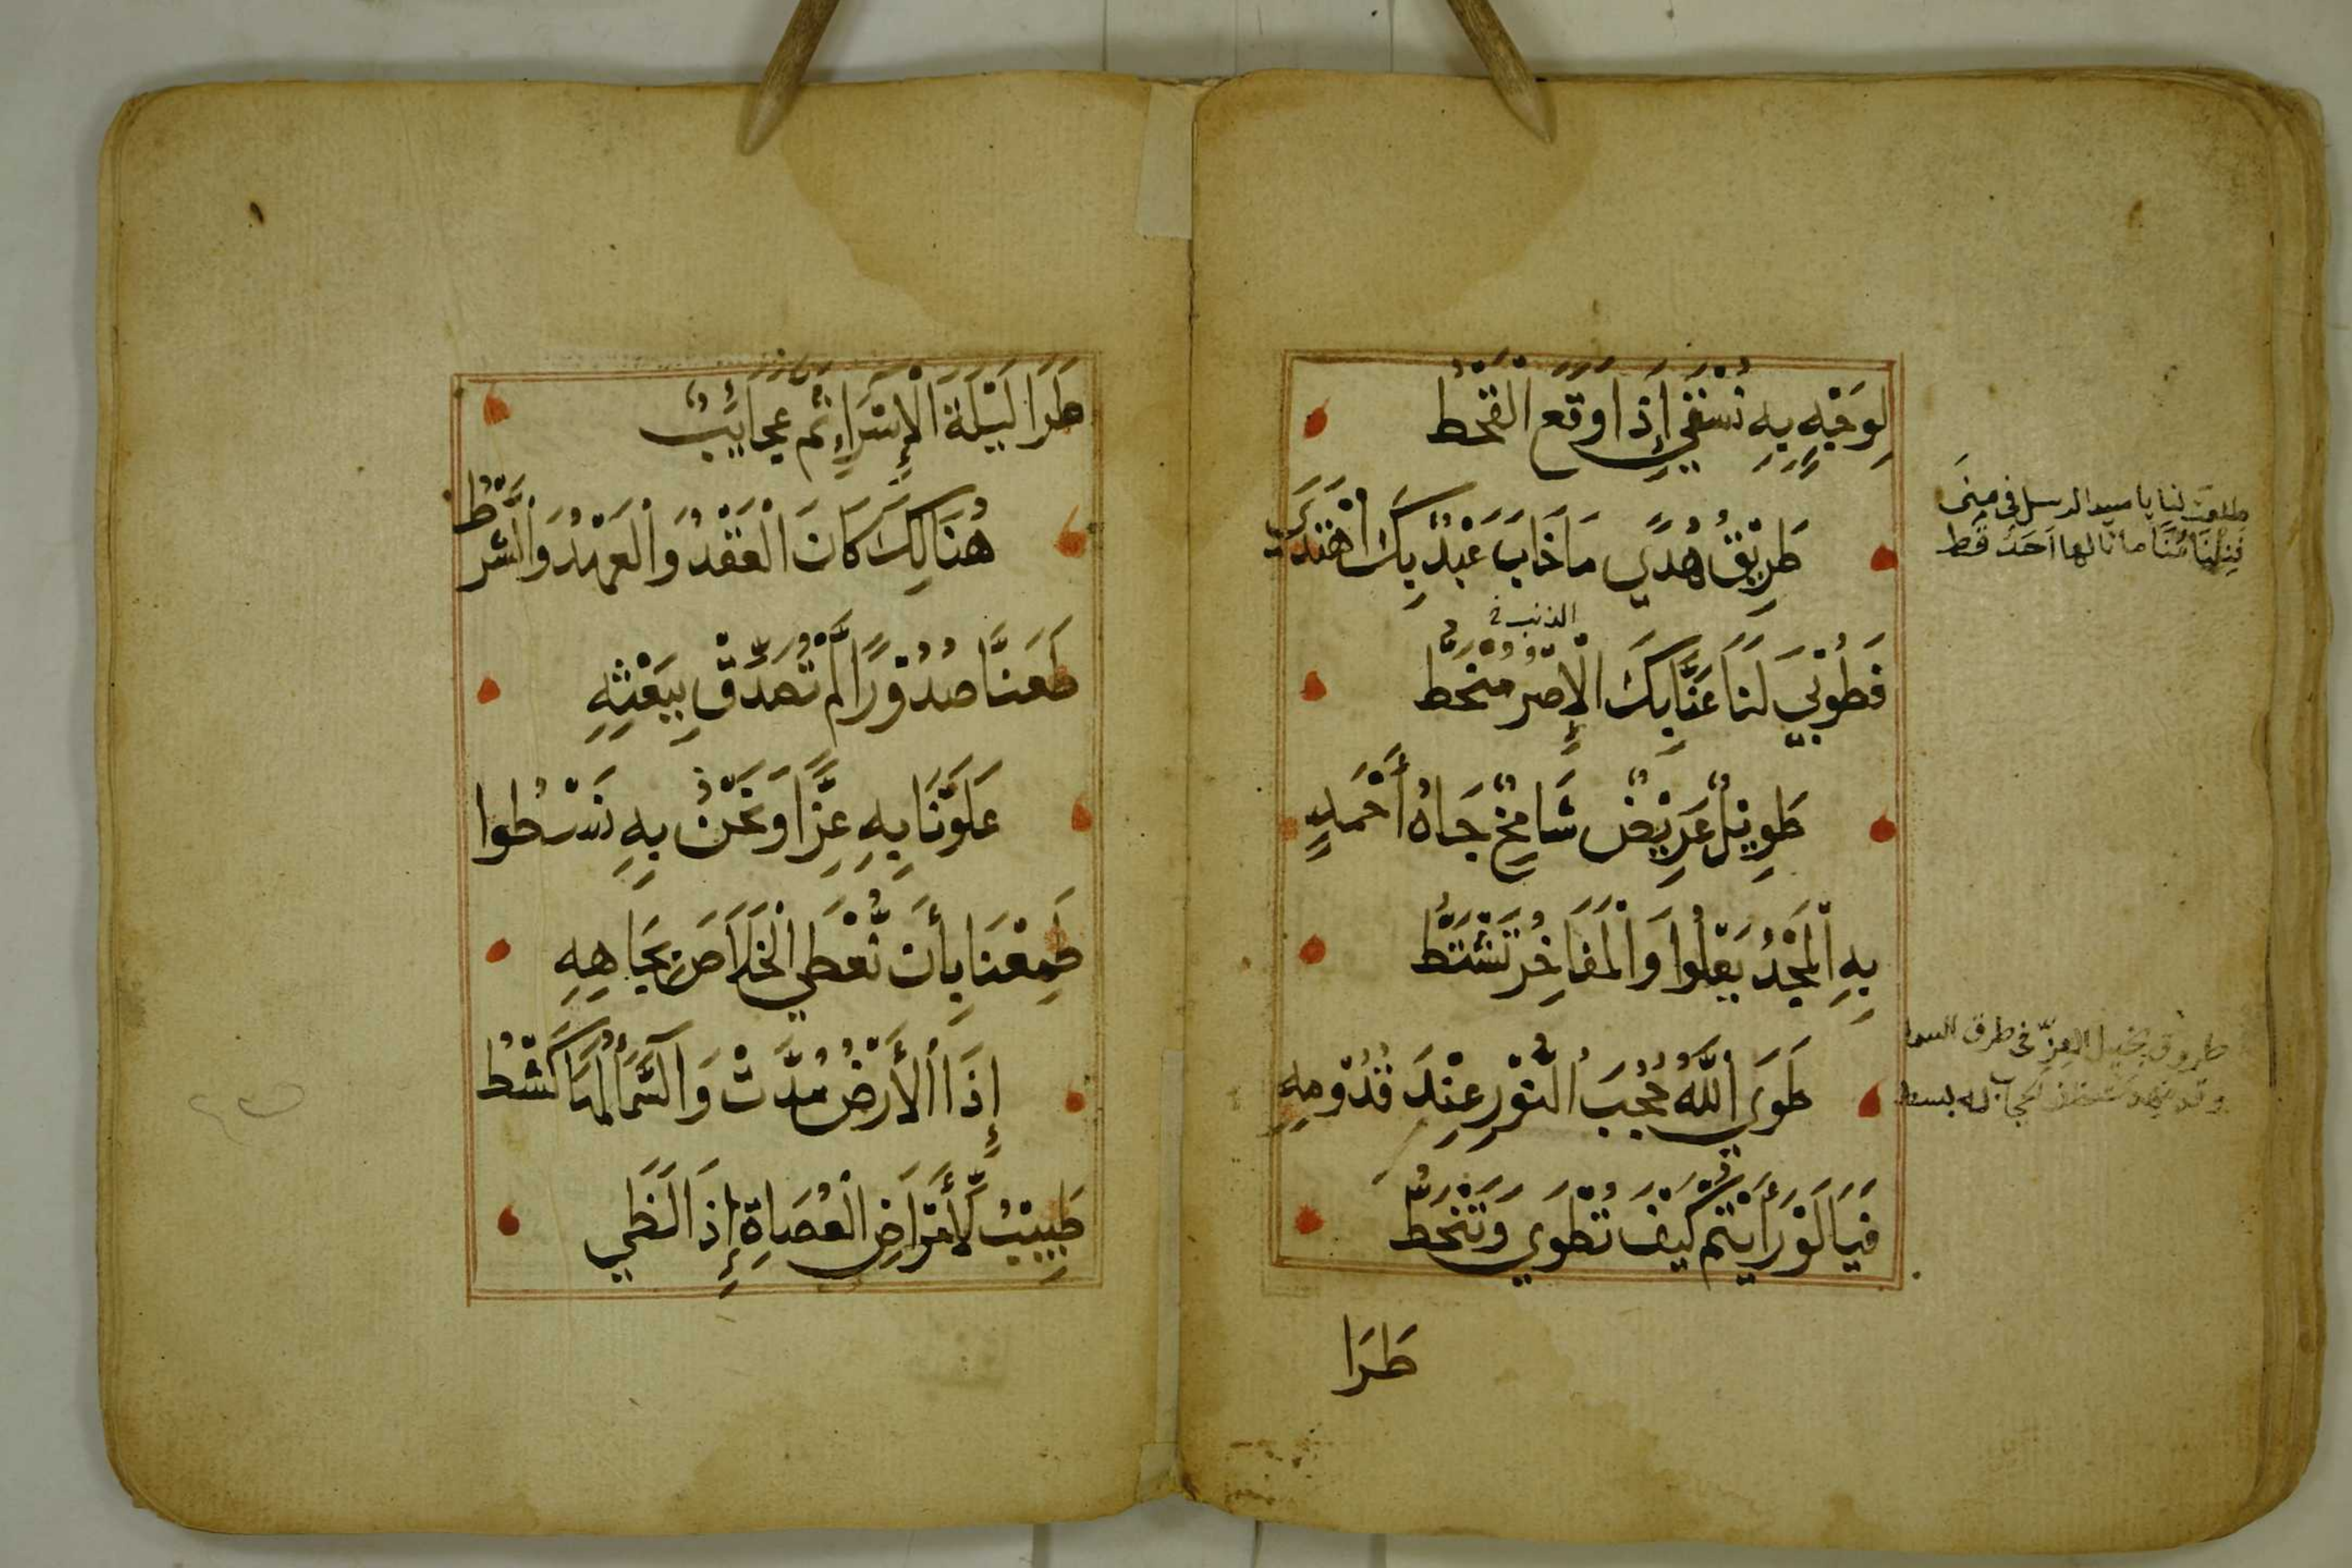 لِوَجْهٍ بِهِ نُسْقَي إِذَا وَقَعَ الْقَحْطُ
طَرِيْقُ هُدًي مَا خَابَ عَبْدٌ بِكَ اهْتَدَي
فَطُوْبَي لَنَا عَنَّا بِكَ الْإِصْرُ مُنْحَطُّ
الذنب
طَوِيْلٌ عَرِيْضٌ شَامِخٌ جَاهُ أَحْمَدٍ
بِهِ الْمَجْدُ يَعْلُوا وَالْمَفَاخِرُ تَشْتَطُّ
طَوَي اللَّهُ حُجْبَ النُّوْرِ عِنْدَ قُدُوْمِهِ
فَيَا لَوْ رَأَيْتُمْ كَيْفَ تُطْوَي وَتَنْحَطُّ
طَرَا
طلعت لنا يا سيد الرسل في منى
فنلنا مُنًا ما نالها أحد قط
في طرق السما
له بسط
طَرَا لَيْلَةَ الْإِسْرَاءِ ثَمَّ عَجَائِبٌ
هُنَالِكَ كَانَ الْعَقْدُ وَالْعَهْدُ وَالشَّرْطُ
طَعَنَّا صُدُوْرًا لَّمْ تُصَدِّقْ بِبَعْثِهِ
عَلَوْنَا بِهِ عِزًّا وَنَحْنُ بِهِ نَسْطُوا
طَمِعْنَا بِأَن نُّعْطَي الْخَلَاصَ بِجَاهِهِ
إِذَا الْأَرْضُ مُدَّتْ وَالسَّمَاءُ لَهَا كَشْطُ
طَبِيْبٌ لِّأَمْرَاضِ الْعُصَاةِ إِذَا لَظَي